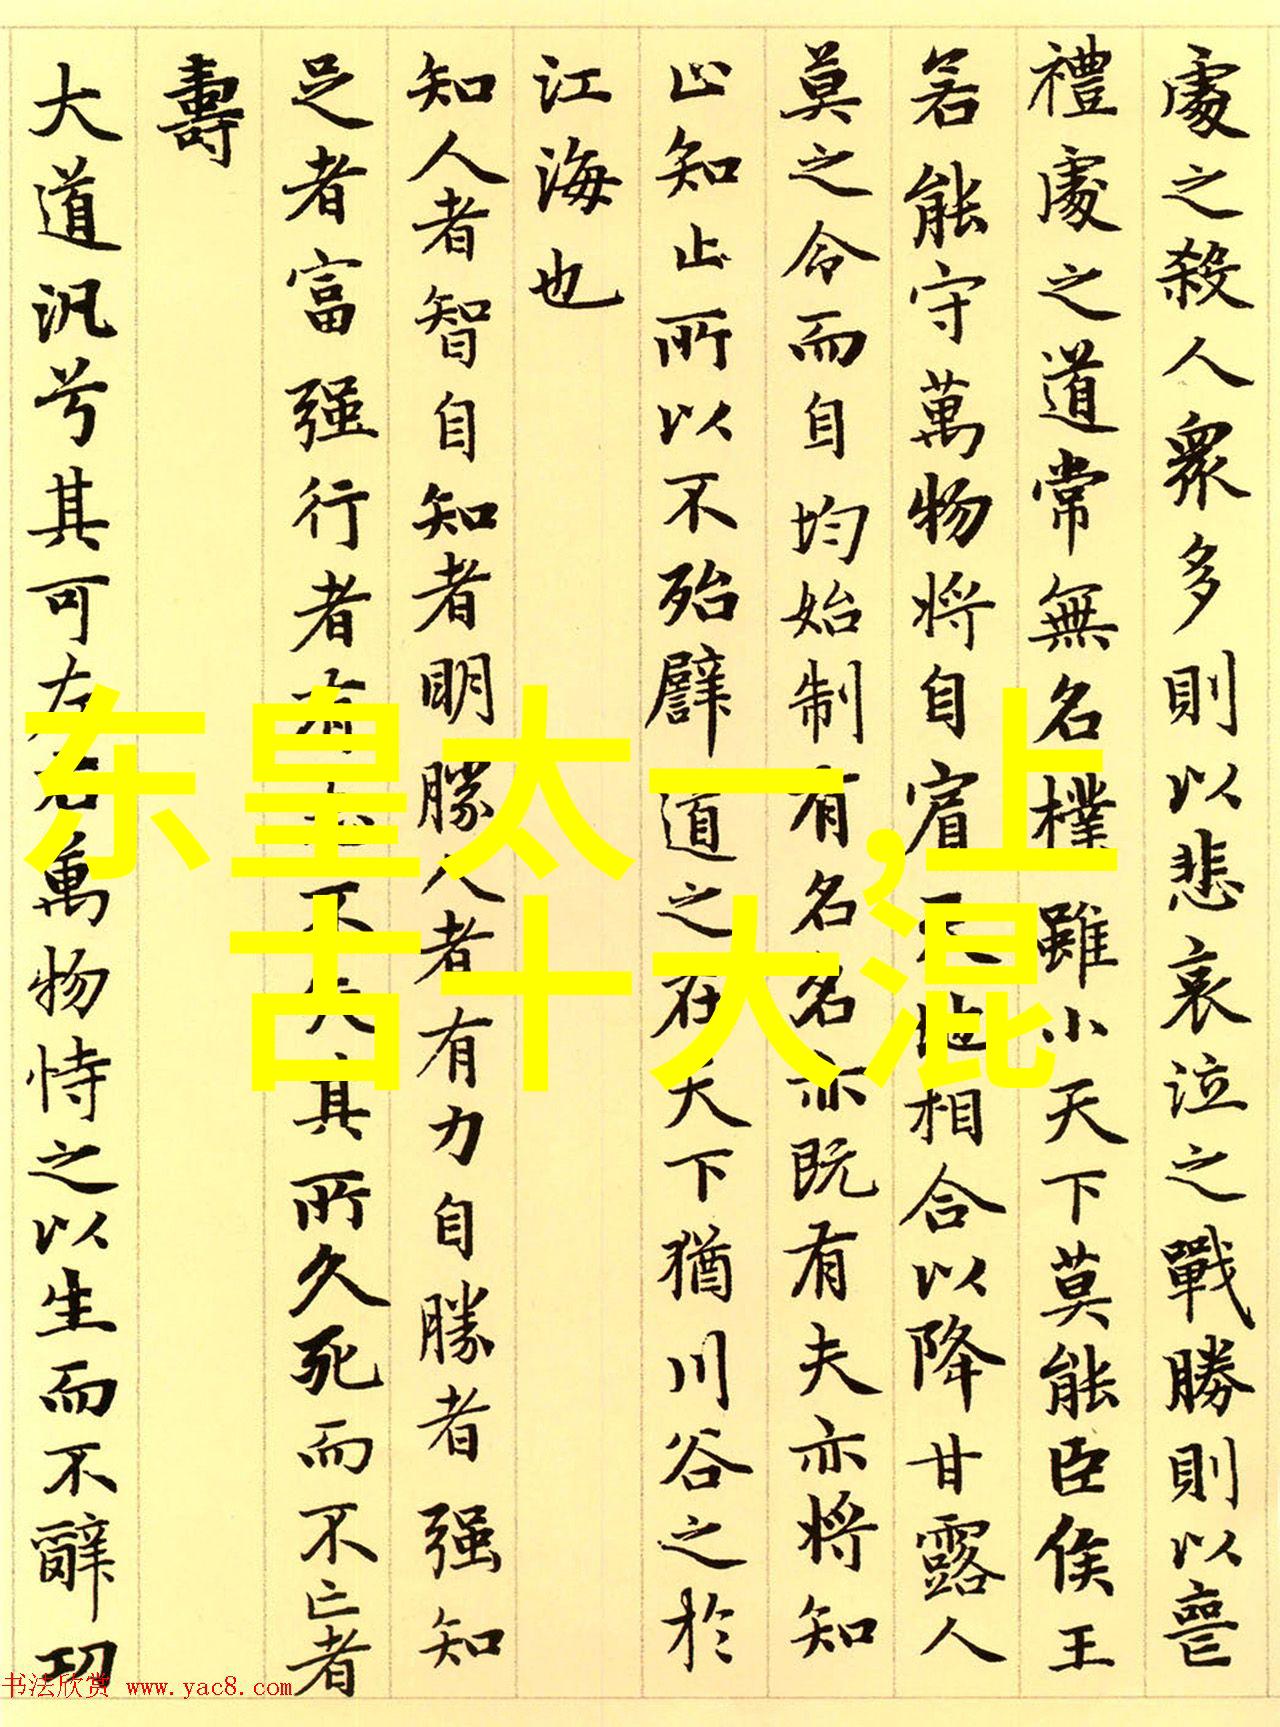 處之殺人衆多則以悲哀泣之戰勝則以喪
禮處之道常無名樸雖小天下莫能臣侯王
若能守萬物將自賓天地相合以降甘露人
莫之令而自均始制有名名亦既有夫亦將知
止知止所以不殆譬道之在天下猶川谷之於
江海也
知人者智自知者明勝人者有力自勝者强知
足者富强行者有志不失其所久死而不亡者
壽
大道汎兮其可左右萬物恃之以生而不辭功
东皇太一,上
古十大混
书法欣赏 www.yac8.com